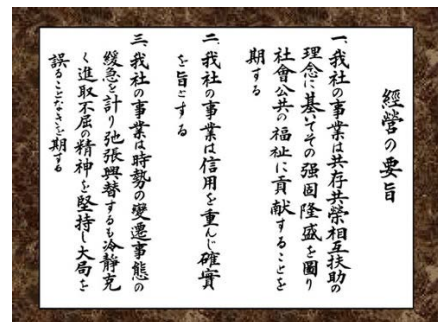 經營の要旨
一、我社の事業は共存共榮相互扶助の
理念に基いてその强固隆盛を圖り
社會公共の福祉に貢献することを
期する
二、我社の事業は信用を重んじ確實
を旨とする
三、我社の事業は時勢の變遷事態の
緩急を計り弛張興替するも冷靜克
く進取不屈の精神を堅持し大局を
誤ることなきを期する